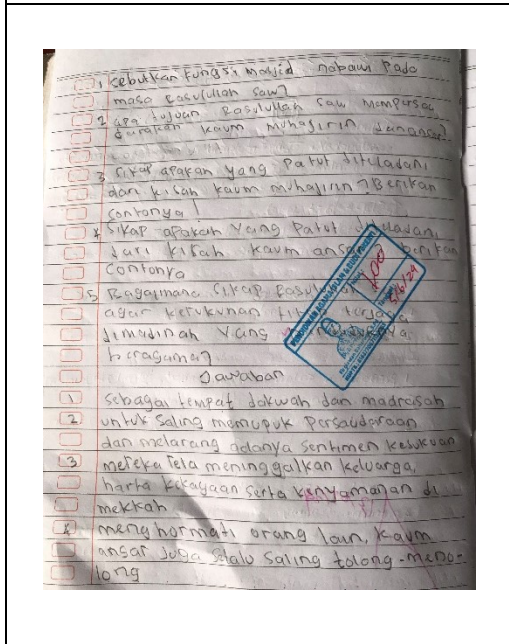 1 Sebutkan fungsi masjid nabawi Pada
masa Rasulullah saw?
2 apa tujuan Rasulullah saw Mempersau
darakan kaum Muhajirin dan ansar?
3 Sikap apakah yang Patut diteladani
dari kisah kaum Muhajirin? Berikan
Contonya
4 Sikap apakah yang Patut diteladani
dari kisah kaum ansar berikan
Contonya
5 Bagaimana Sikap Rasulullah
agar kerukunan terjaga
dimadinah Yang
beragaman?
Jawaban
1 Sebagai tempat dakwah dan madrasah
2 untuk Saling memupuk Persaudaraan
dan melarang adanya Sentimen kesukuan
3 mereka tela meninggalkan keluarga,
harta kekayaan serta kenyamanan di
mekkah
4 menghormati orang lain, kaum
ansar Juga Selalu Saling tolong-meno-
long
100